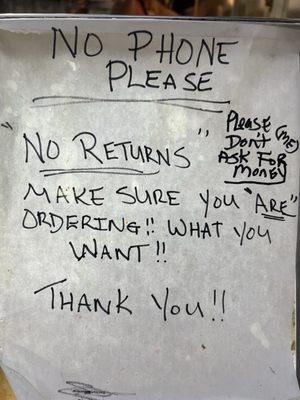 NO PHONE
PLEASE
"NO RETURNS"
Please (ME)
Don't
ASK FOR
MONEY
MAKE SURE YOU "ARE"
ORDERING!! WHAT YOU
WANT!!
THANK YOU!!